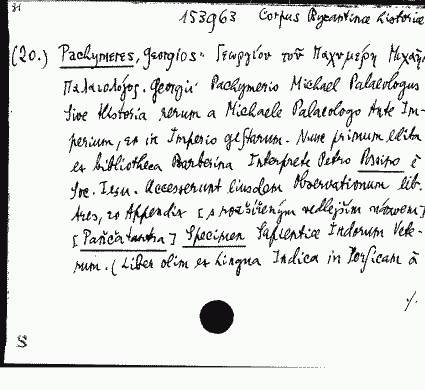 31
153963 Corpus Byzantinæ historiæ
(20.) Pachymeres, Georgios. Γεωργίου τοῦ Παχυμέρη Μιχαὴλ
Παλαιολόγος. Georgii Pachymeris Michael Palaeologus
sive Historia rerum a Michaele Palaeologo Ante Im-
perium, et in Imperio gestarum. Nunc primum edita
ex bibliotheca Barberina Interprete Petro Posino è
Soc. Iesu. Accesserunt Eiusdem Observationum lib.
tres, et Appendix [s rozšířeným vedlejším názvem]
[Pañčatantra] Specimen Sapientiæ Indorum Vete-
rum. (Liber olim ex Lingua Indica in Persicam à
./.
S